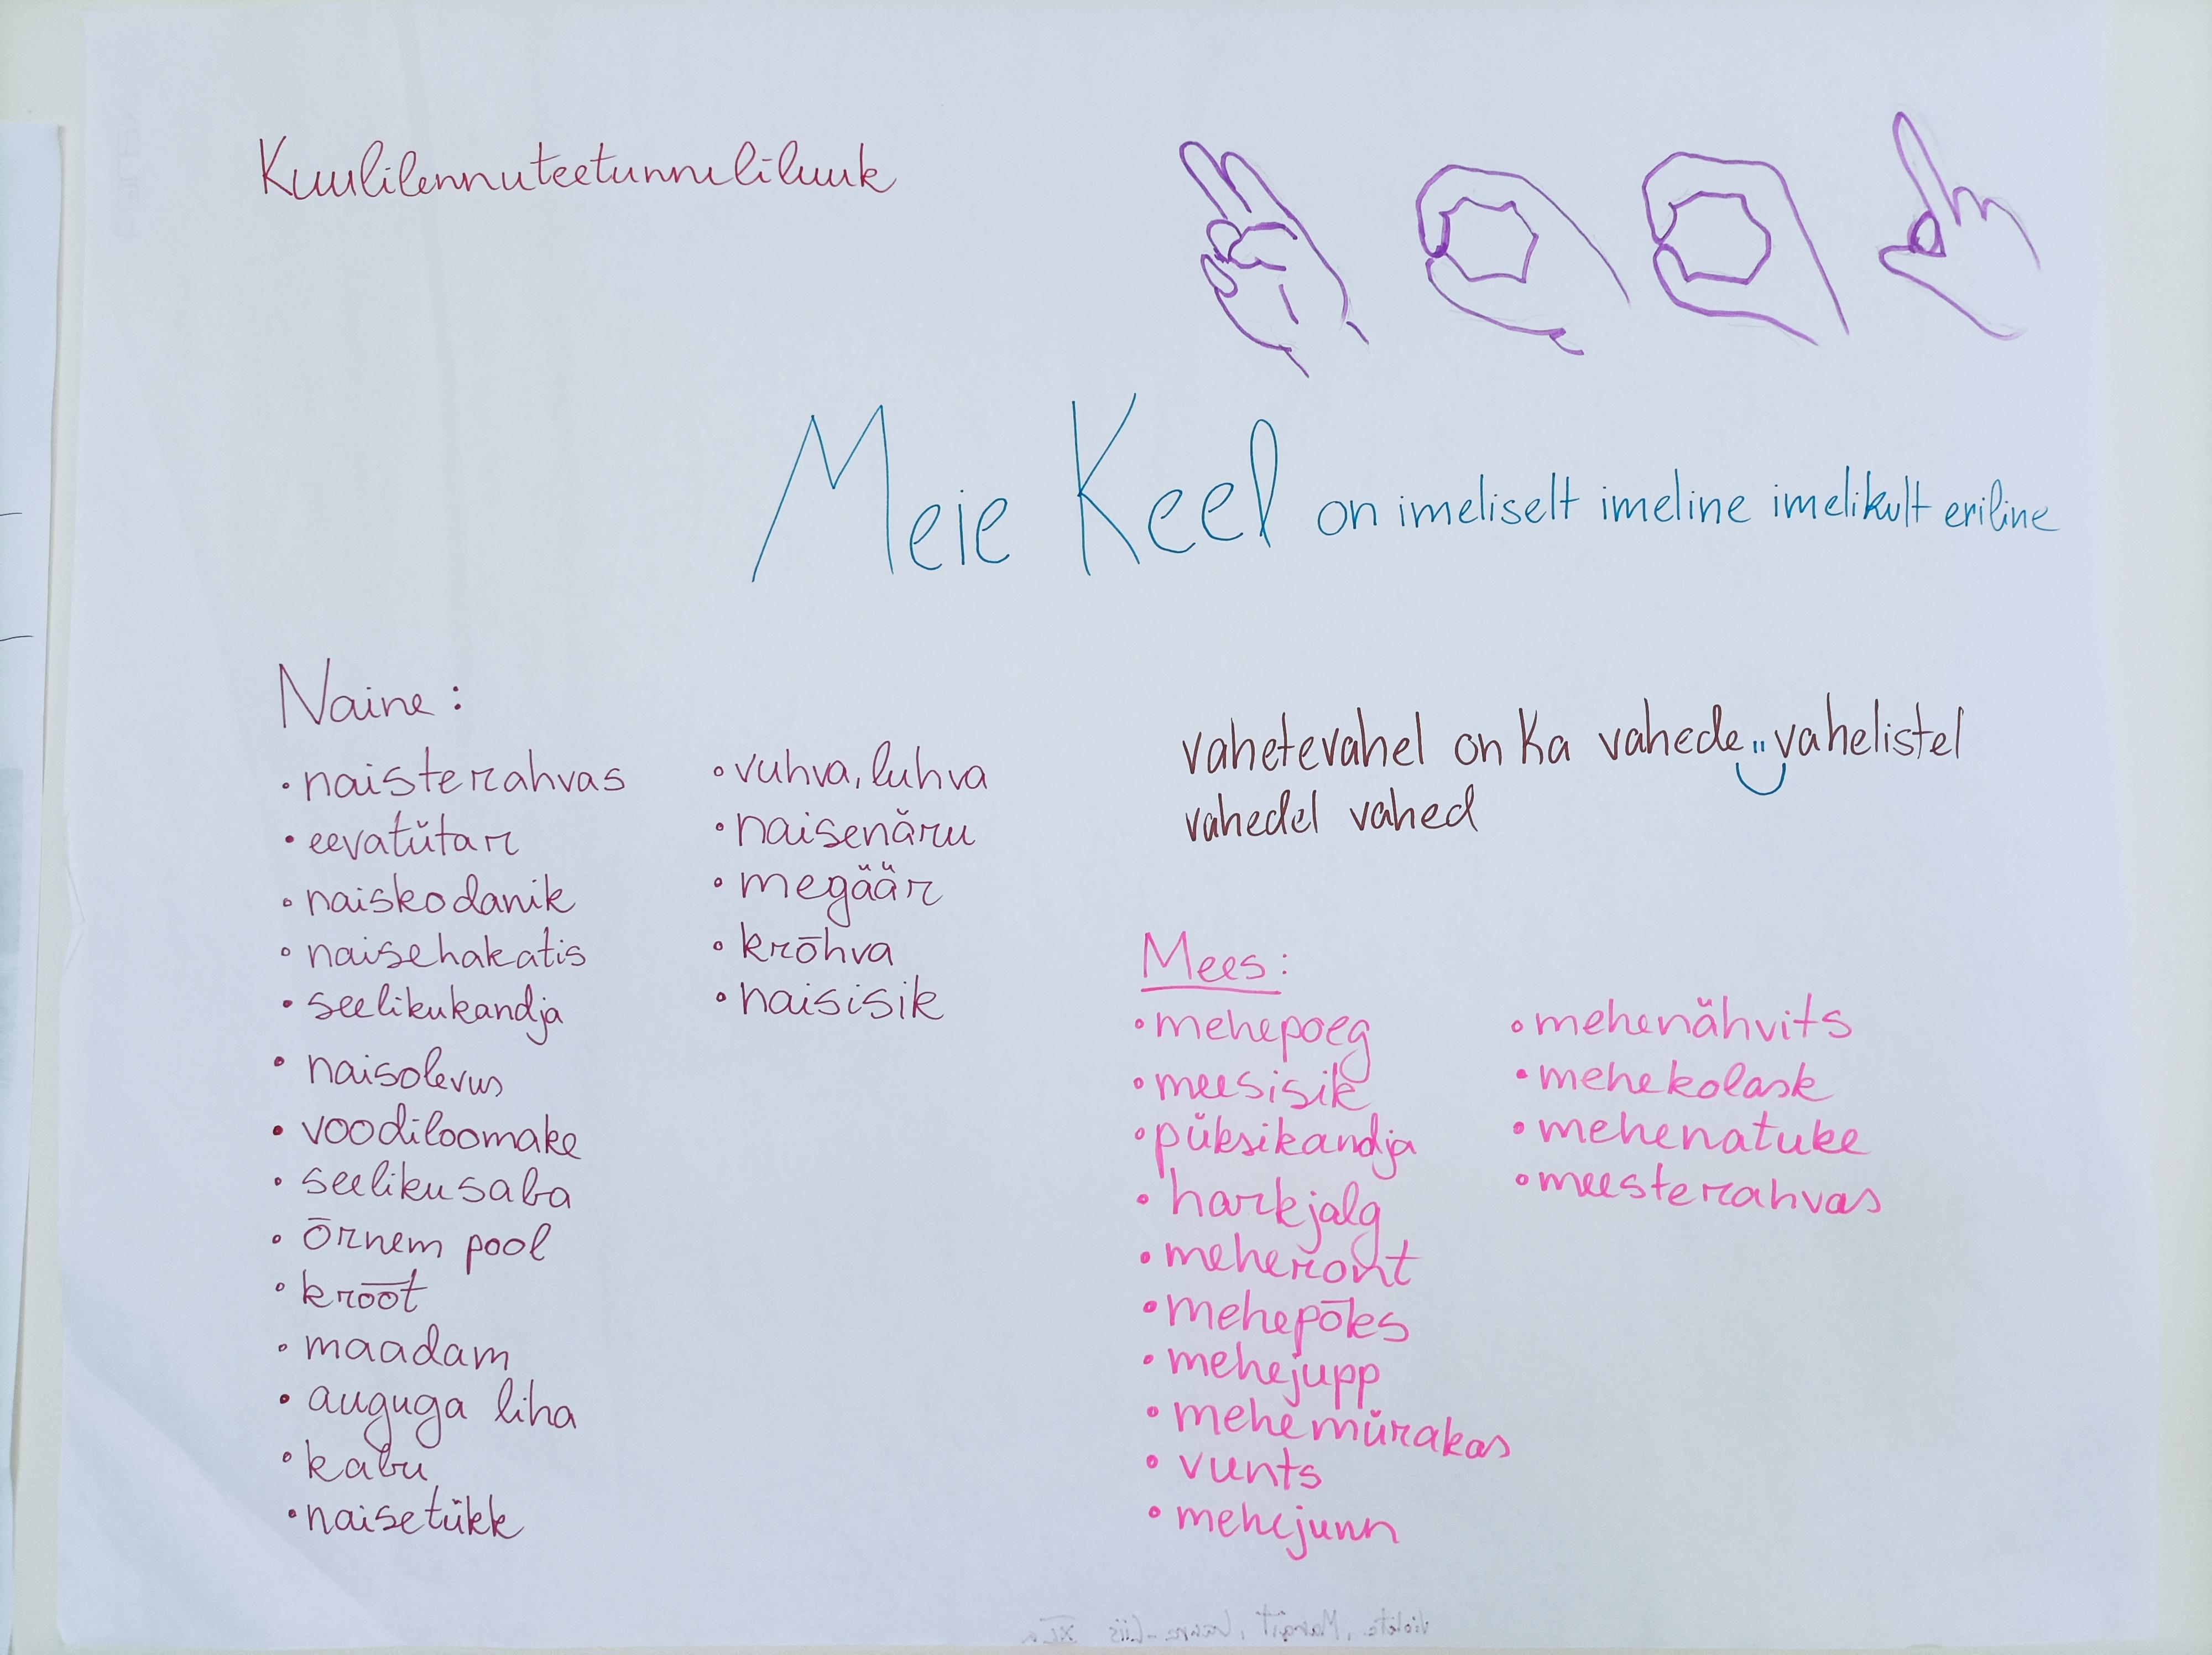 Kuulilennuteetunneliluuk
Meie Keel on imeliselt imeline imelikult eriline
Naine:
• naisterahvas
• eevatütar
• naiskodanik
• naisehakatis
• seelikukandja
• naisolevus
• voodiloomake
• seelikusaba
• õrnem pool
• krõõt
• maadam
• auguga liha
• kabu
• naisetükk
• vuhva, luhva
• naisenäru
• megäär
• krõhva
• naisisik
vahetevahel on ka vahede vahelistel
vahedel vahed
Mees:
• mehepoeg
• meesisik
• püksikandja
• harkjalg
• meheront
• mehepõks
• mehejupp
• mehemürakas
• vunts
• mehejunn
• mehenähvits
• mehekolask
• mehenatuke
• meesterahvas